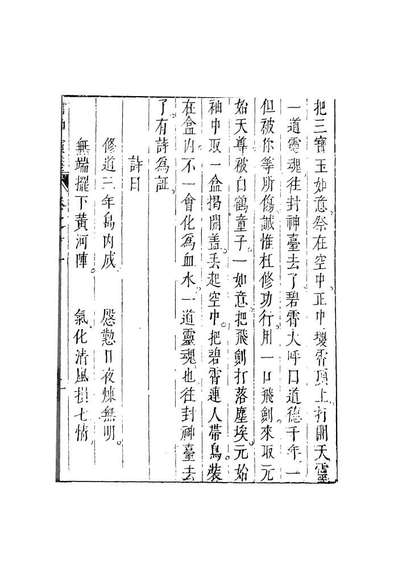 把三寶玉如意祭在空中正中瓊霄頂上打開天靈
一道靈魂往封神臺去了碧霄大呼曰道德千年一
但被你等所傷誠惟枉修功行用一口飛劍來取元
始天尊被白鶴童子一如意把飛劍打落塵埃元始
袖中取一盒揭開蓋丟起空中把碧霄連人帶鳥裝
在盒內不一會化為血水一道靈魂也往封神臺去
了有詩為証
詩曰
修道三年島內成 慇懃日夜煉無明
無端擺下黃河陣 氣化清風損七情